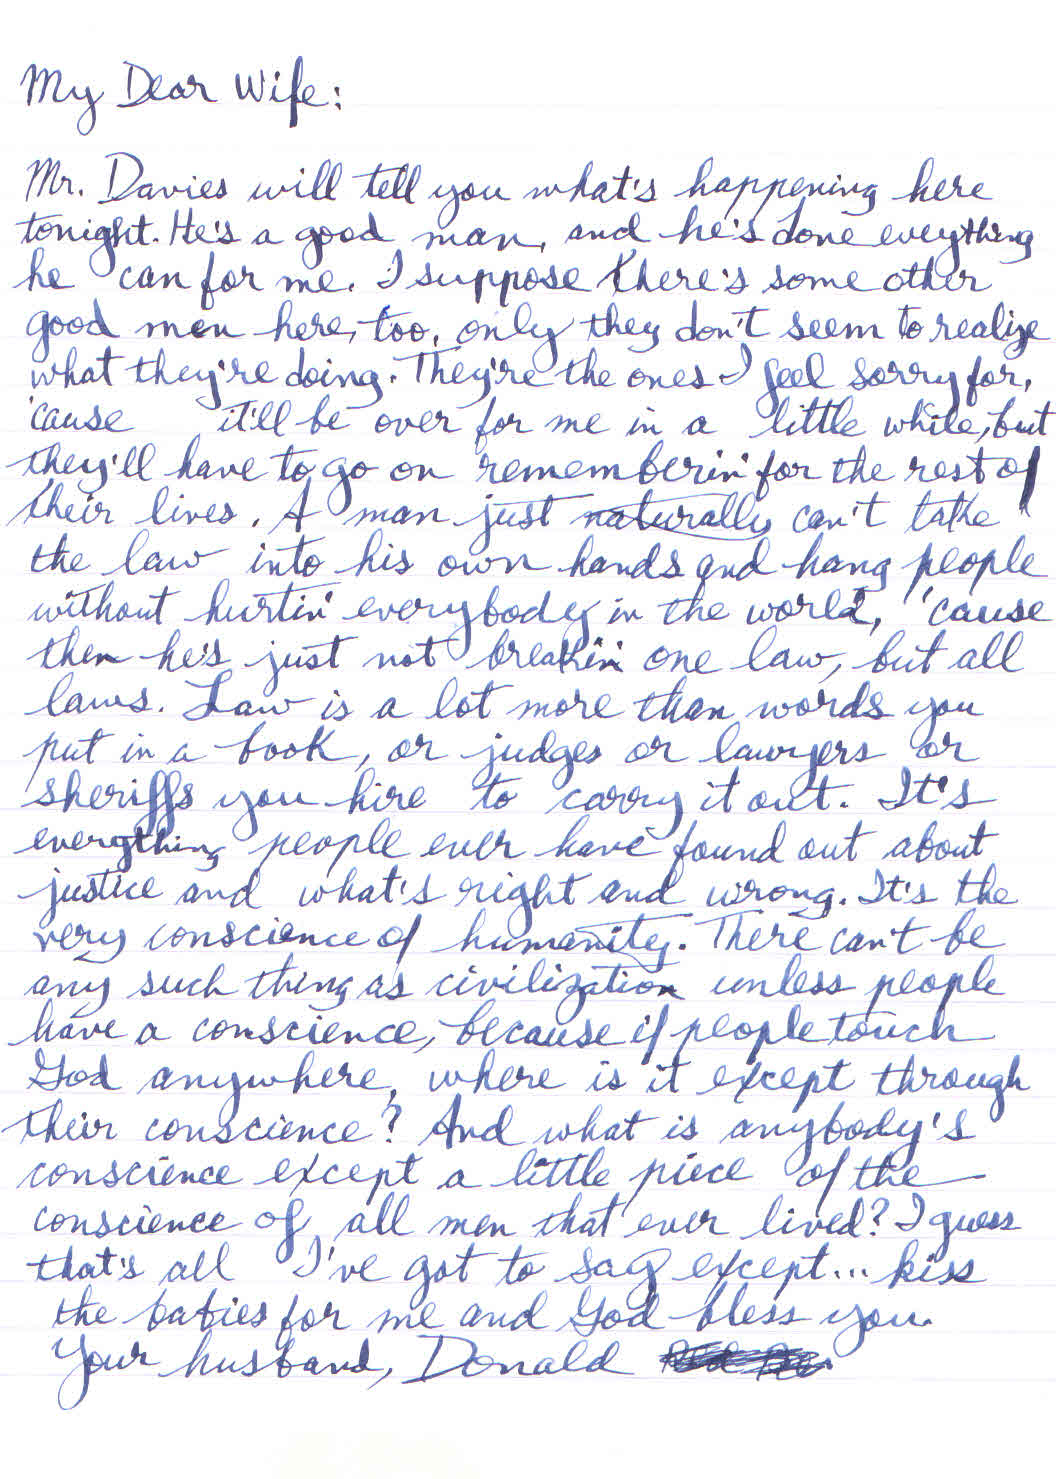 My Dear Wife:
Mr. Davies will tell you what's happening here
tonight. He's a good man, and he's done eveything
he can for me. I suppose there's some other
good men here, too, only they don't seem to realize
what they're doing. They're the ones I feel sorry for,
'cause it'll be over for me in a little while, but
they'll have to go on rememberin' for the rest of
their lives. A man just naturally can't take
the law into his own hands and hang people
without hurtin' everybody in the world, 'cause
then he's just not breakin' one law, but all
laws. Law is a lot more than words you
put in a book, or judges or lawyers or
sheriffs you hire to carry it out. It's
everything people ever have found out about
justice and what's right and wrong. It's the
very conscience of humanity. There can't be
any such thing as civilization unless people
have a conscience, because if people touch
God anywhere, where is it except through
their conscience? And what is anybody's
conscience except a little piece of the
conscience of all men that ever lived? I guess
that's all I've got to say except... kiss
the babies for me and God bless you.
Your husband, Donald